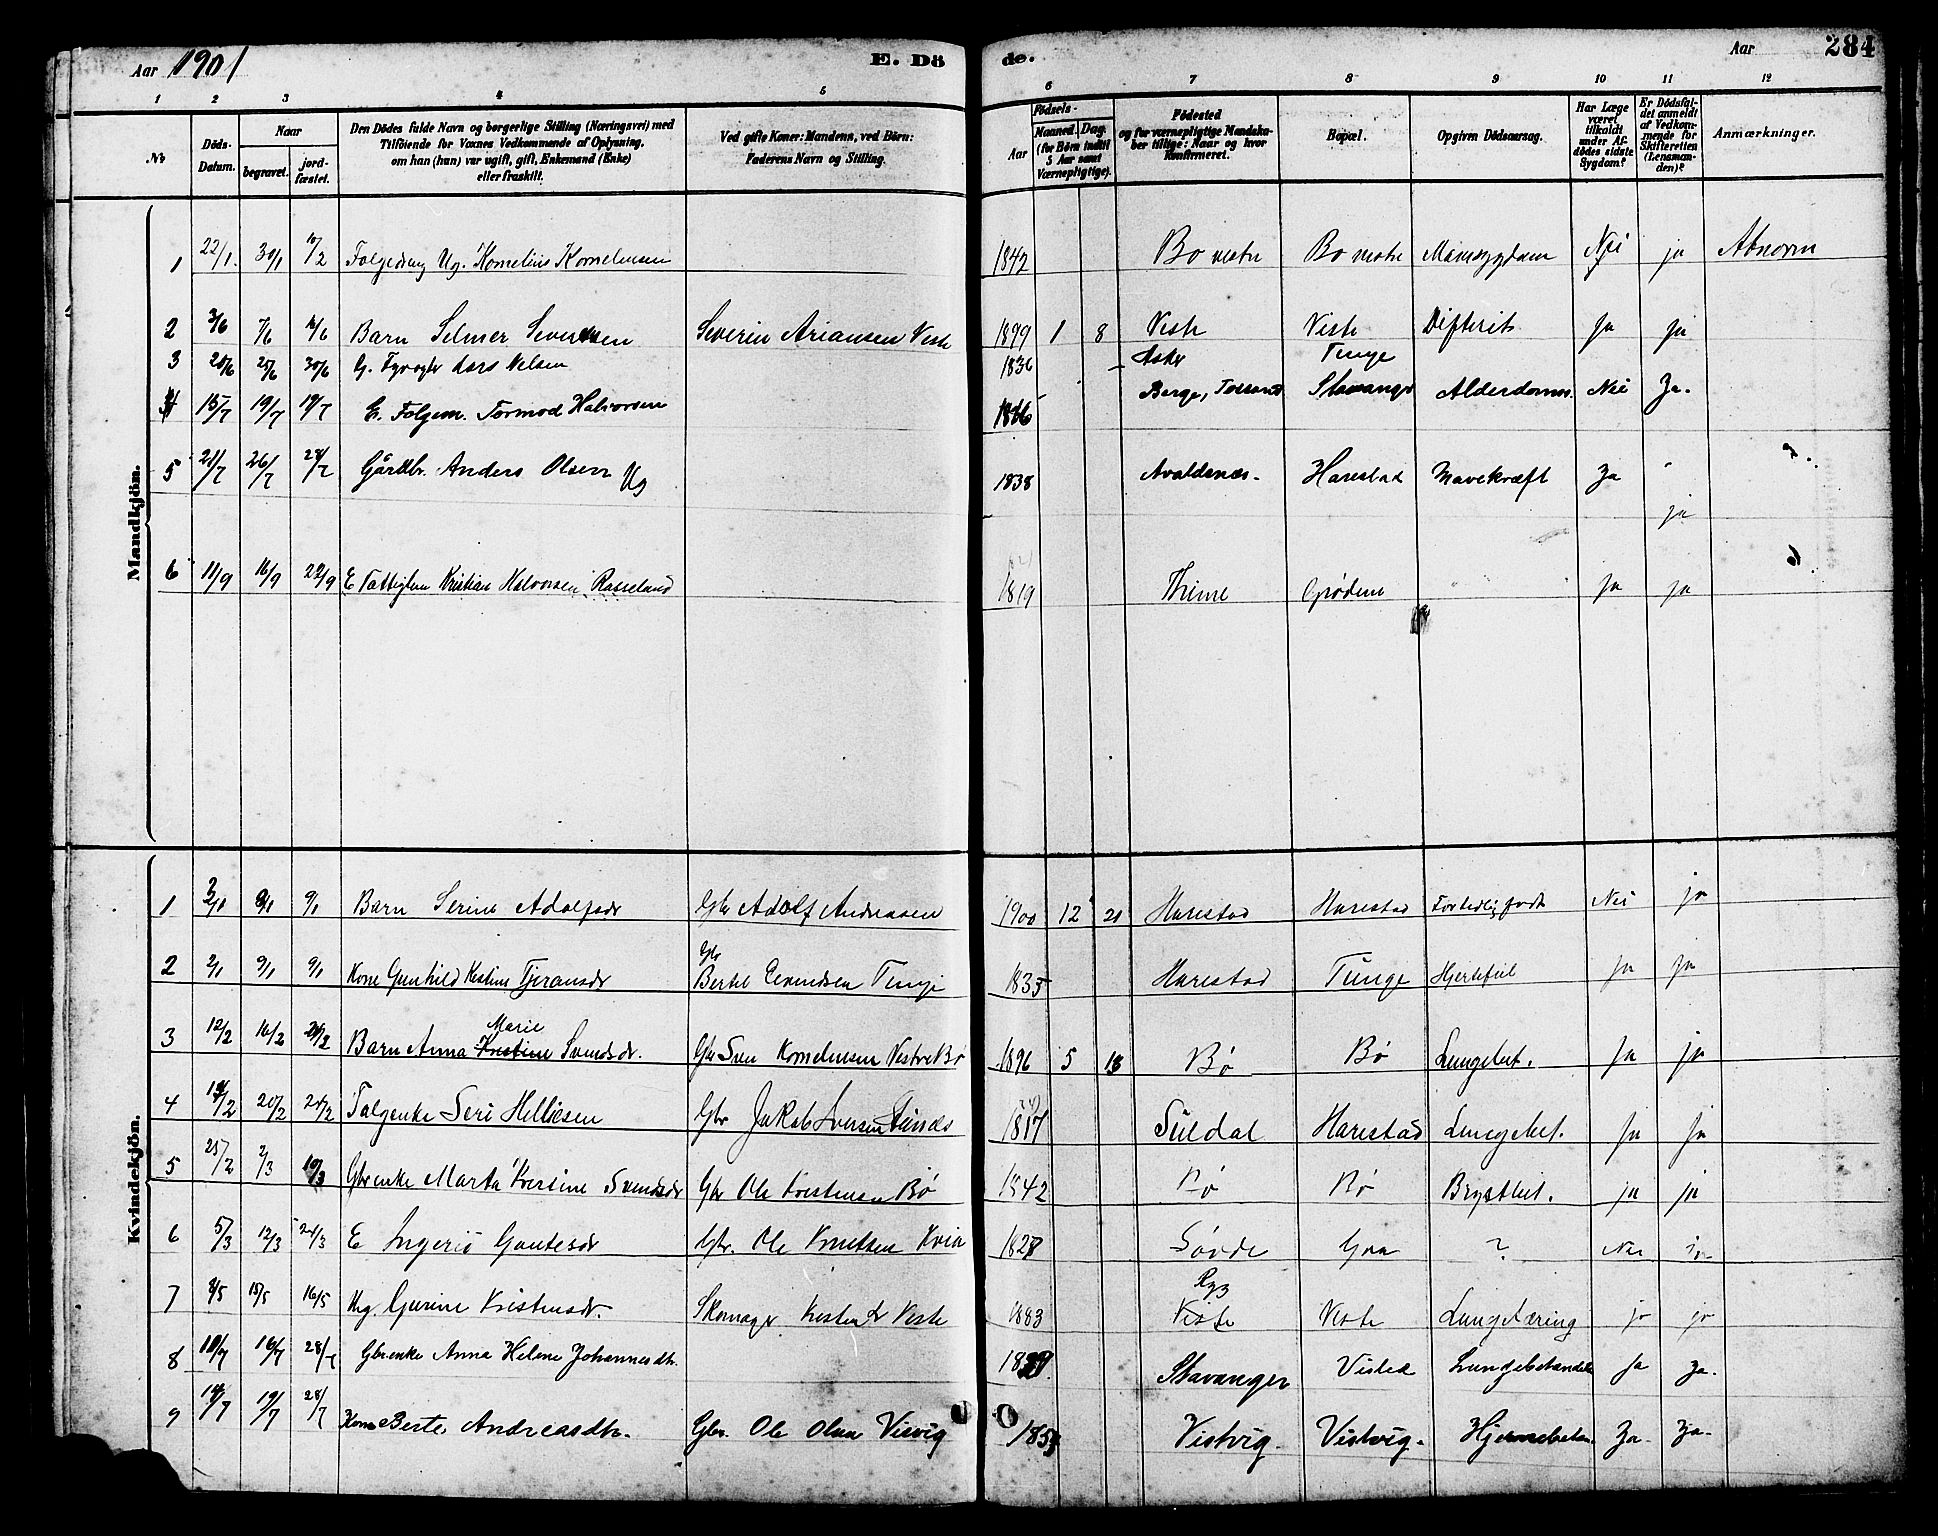 Aar 1901 E. Dö de. Aar 284
1 2 3 4 5 6 7 8 9 10 11 12
No
Döds-Datum.
Naar begravet. jordfæstet.
Den Dödes fulde Navn og borgerlige Stilling (Næringsvei) med Tilföiende for Voxnes Vedkommende af Oplysning, om han (hun) var ugift, gift, Enkemand (Enke) eller fraskilt.
Ved gifte Koner: Mandens, ved Börn: Faderens Navn og Stilling.
Födsels-
Aar
Maaned. Dag. (for Börn indtil 5 Aar samt Værnepligtige).
Födested og for værnepligtige Mandskaber tillige: Naar og hvor konfirmeret.
Bopæl.
Opgiven Dödsaarsag.
Har Læge været tilkaldt under Afdödes sidste Sygdom?
Er Dödsfaldet anmeldt af Vedkommende for Skifteretten (Lensmanden)?
Anmærkninger.
Mandkjön.
1 22/1 30/1 10/2 Ug. Kornelius Kornelius­sen 1842 Bo vestre Bo vestre Nei ja Abnorm
2 3/6 7/6 Barn Selmer Seversen Severin Ariansen Viste 1899 1 8 Viste Viste Difterit ja ja
3 20/6 25/6 30/6 G. Lars Nelsen 1836 Tunge
4 15/7 19/7 19/7 E. Folgem. Tormod Halvorsen 1816 Berge, Stavanger Alderdomss. Nei Ja.
5 21/7 26/7 28/7 Gårdbr. Anders Olsen Ug 1838 Avaldsnæs. Harestad Mavekræft Ja
ja
6 11/9 16/9 22/9 E Fattiglem Kristian Halvorsen Rasseland 1819 Thime Grødem " ja ja
Kvindekjön.
1 2/1 9/1 9/1 Barn Serine Adolfsdr Gbr Adolf Andreasen 1900 12 21 Harestad Harestad Fortidlig født Nei ja
2 2/1 9/1 9/1 Kone Gunhild Kestine Tjeransdr Gbr Bertel Eivendsen Tunge 1835 Harestad Tunge Hjertefeil ja ja
3 12/2 16/2 Barn Anna Kristine Marie Svendsdr. Gbr Sven Korneliussen Vestre Bø 1896 5 18 Bø Bø Lungebet. ja ja
4 20/2 24/2 Folgenke Seri Helliesen Gbr Jakob Iversen 1817 Suldal Harestad Lungebet. ja ja
5 25/2 2/3 10/3 Gbrenke Marta Kristine Svendsdr Gbr Ole Kristensen Bø 1842 Bø Bø Brystbet. ja ja
6 5/3 12/3 24/3 E Ingerid Gautesdr Gbr. Ole Knutsen Kvia 1828 Søvde ? Nei ja
7 8/5 15/5 16/5 Ug. Gurine Kristensdr. Skomager Kristen Viste 1883 Viste Viste Lungetæring ja ja
8 10/7 16/7 28/7 Gbrenke Anna Helene Johannesdtr. Stavanger Lungebetændelse ja Ja.
9 14/7 19/7 28/7 Kone Berte Andreasdtr. Gbr. Ole Olsen Visvig 1853 Vistvig. Vistvig. Hjernebetæn. Ja. Ja.